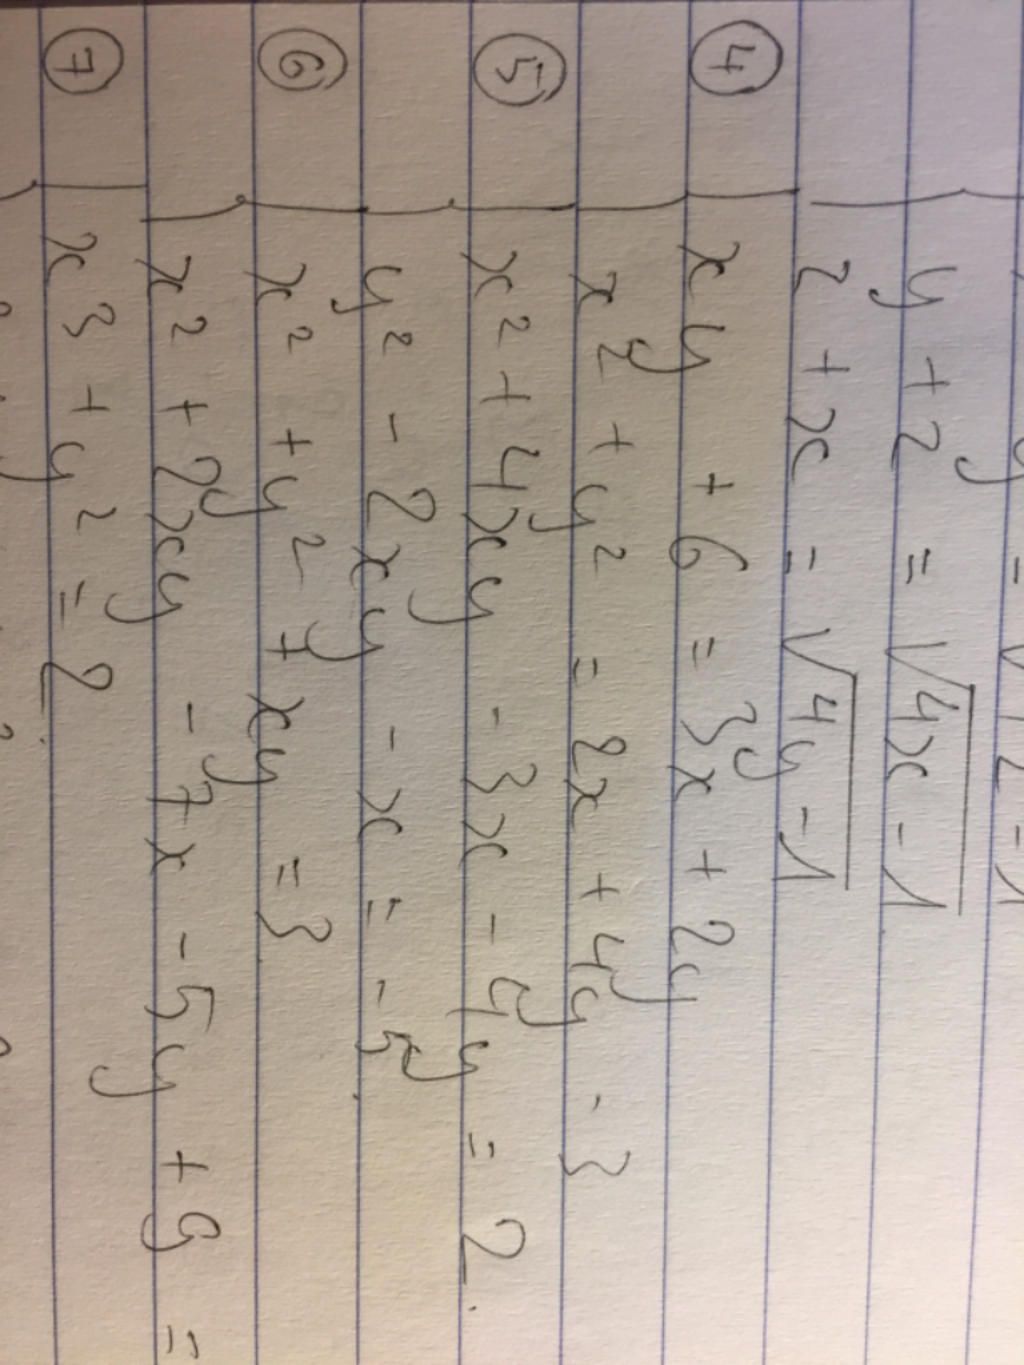 y + z = √4x-1
z + x = √4y-1
④ xy + 6 = 3x + 2y
x² + y² = 2x + 4y - 3
⑤ x² + 4xy - 3x - 4y = 2
y² - 2xy - x = -5
⑥ x² + y² + xy = 3
x² + 2xy - 7x - 5y + 9 =
⑦ x³ + y² = 2